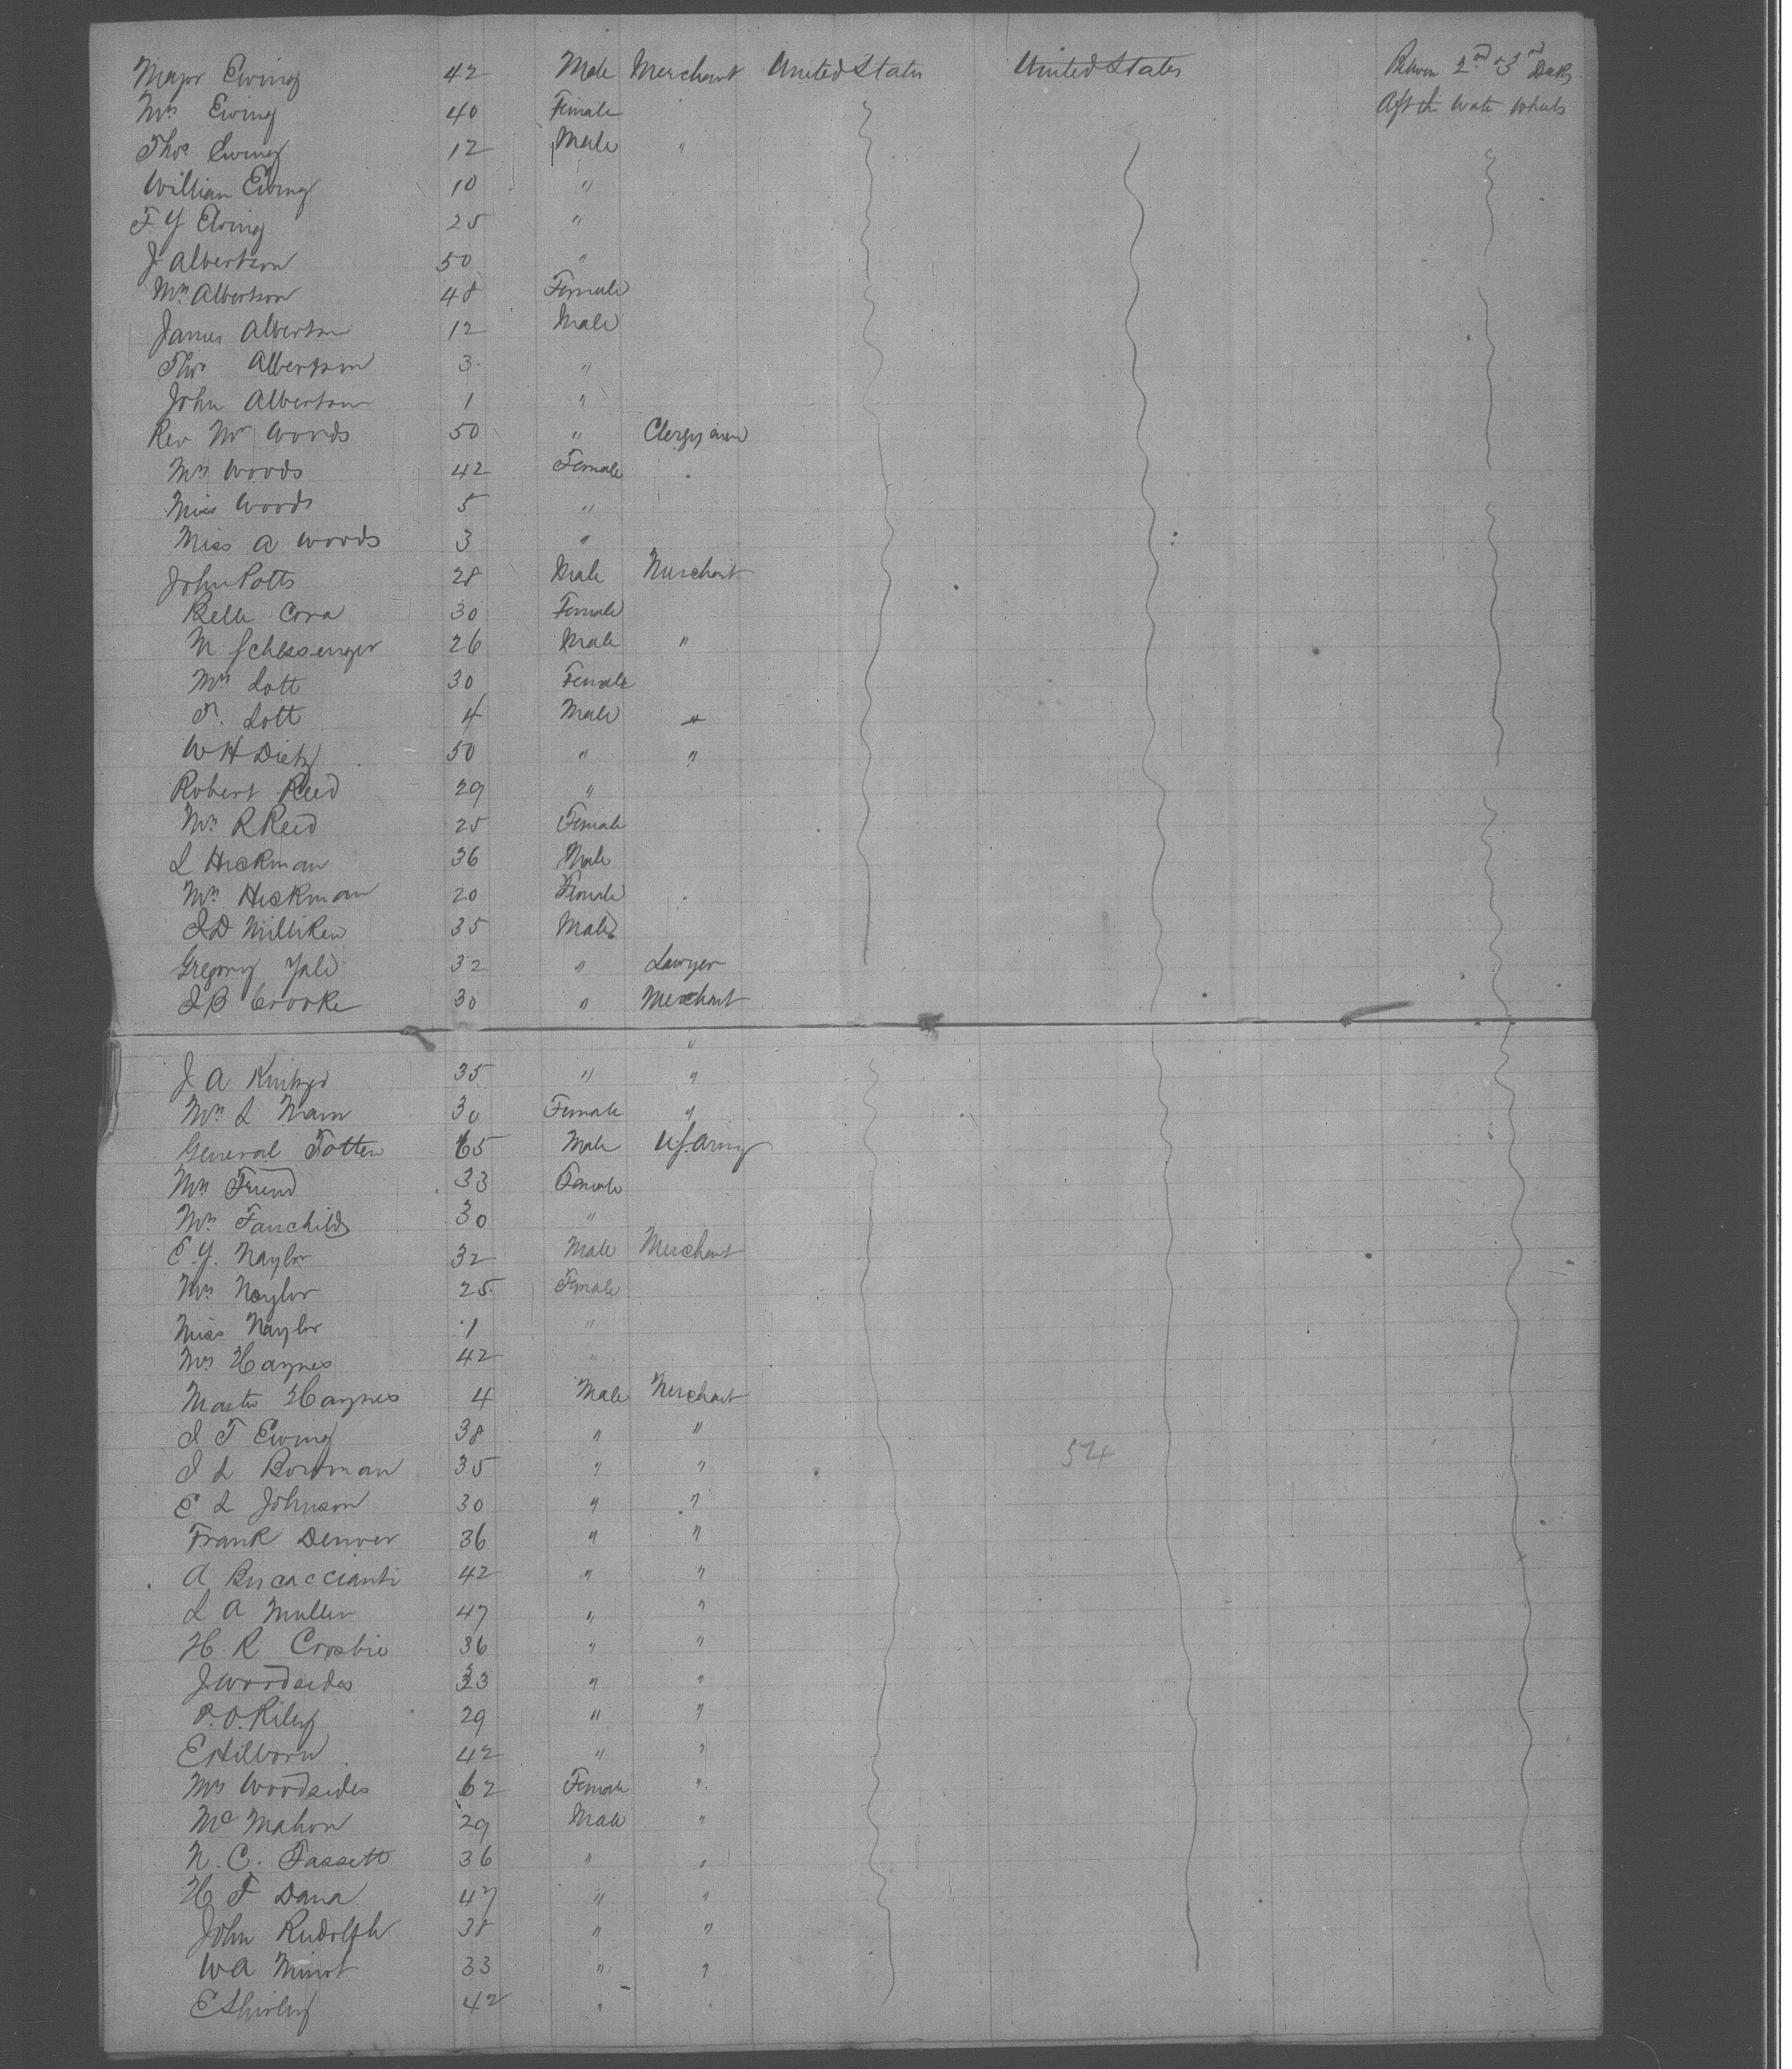 Major Ewing 42 Male Merchant United States United States Between 2nd & 3rd Decks
Mrs Ewing 40 Female Aft the Water Wheels
Thos Ewing 12 Male "
William Ewing 10 "
F Y Ewing 25 "
J Albertson 50 "
Mrs Albertson 48 Female
James Albertson 12 Male
Thos Albertson 3 "
John Albertson 1 "
Rev Mr Woods 50 " Clergyman
Mrs Woods 42 Female
Miss Woods 5 "
Miss A Woods 3 "
John Potts 28 Male Merchant
Belle Cora 30 Female
M Schlessenger 26 Male "
Mrs Lott 30 Female
Lott 4 Male "
W H Dietz 50 " "
Robert Reed 29 "
Mrs R Reed 25 Female
L Hickman 36 Male
Mrs Hickman 20 Female
I D Milliken 35 Male
Gregory Yale 32 " Lawyer
I B Crooke 30 " Merchant
"
J A 35 " "
Mrs L 30 Female "
General Totten 65 Male U.S. Army
Mrs Friend 33 Female
Mrs Fairchilds 30 "
E. Y. Naylor 32 Male Merchant
Mrs Naylor 25 Female
Miss Naylor 1 "
Mrs Haynes 42 "
Master Haynes 4 Male Merchant
I T Ewing 38 " "
I L Bowman 35 " " 524
E L Johnson 30 " "
Frank Denver 36 " "
A Biscaccianti 42 " "
L A Muller 47 " "
H R Crosbie 36 " "
J Woodsides 33 " "
P. O. Riley 29 " "
E Hilborn 42 " "
Mrs Woodsides 62 Female "
Mc Mahon 29 Male "
N. C. Fassett 36 " "
H F Dana 47 " "
John Rudolph 38 " "
W A Minot 33 " "
E Shirley 42 "